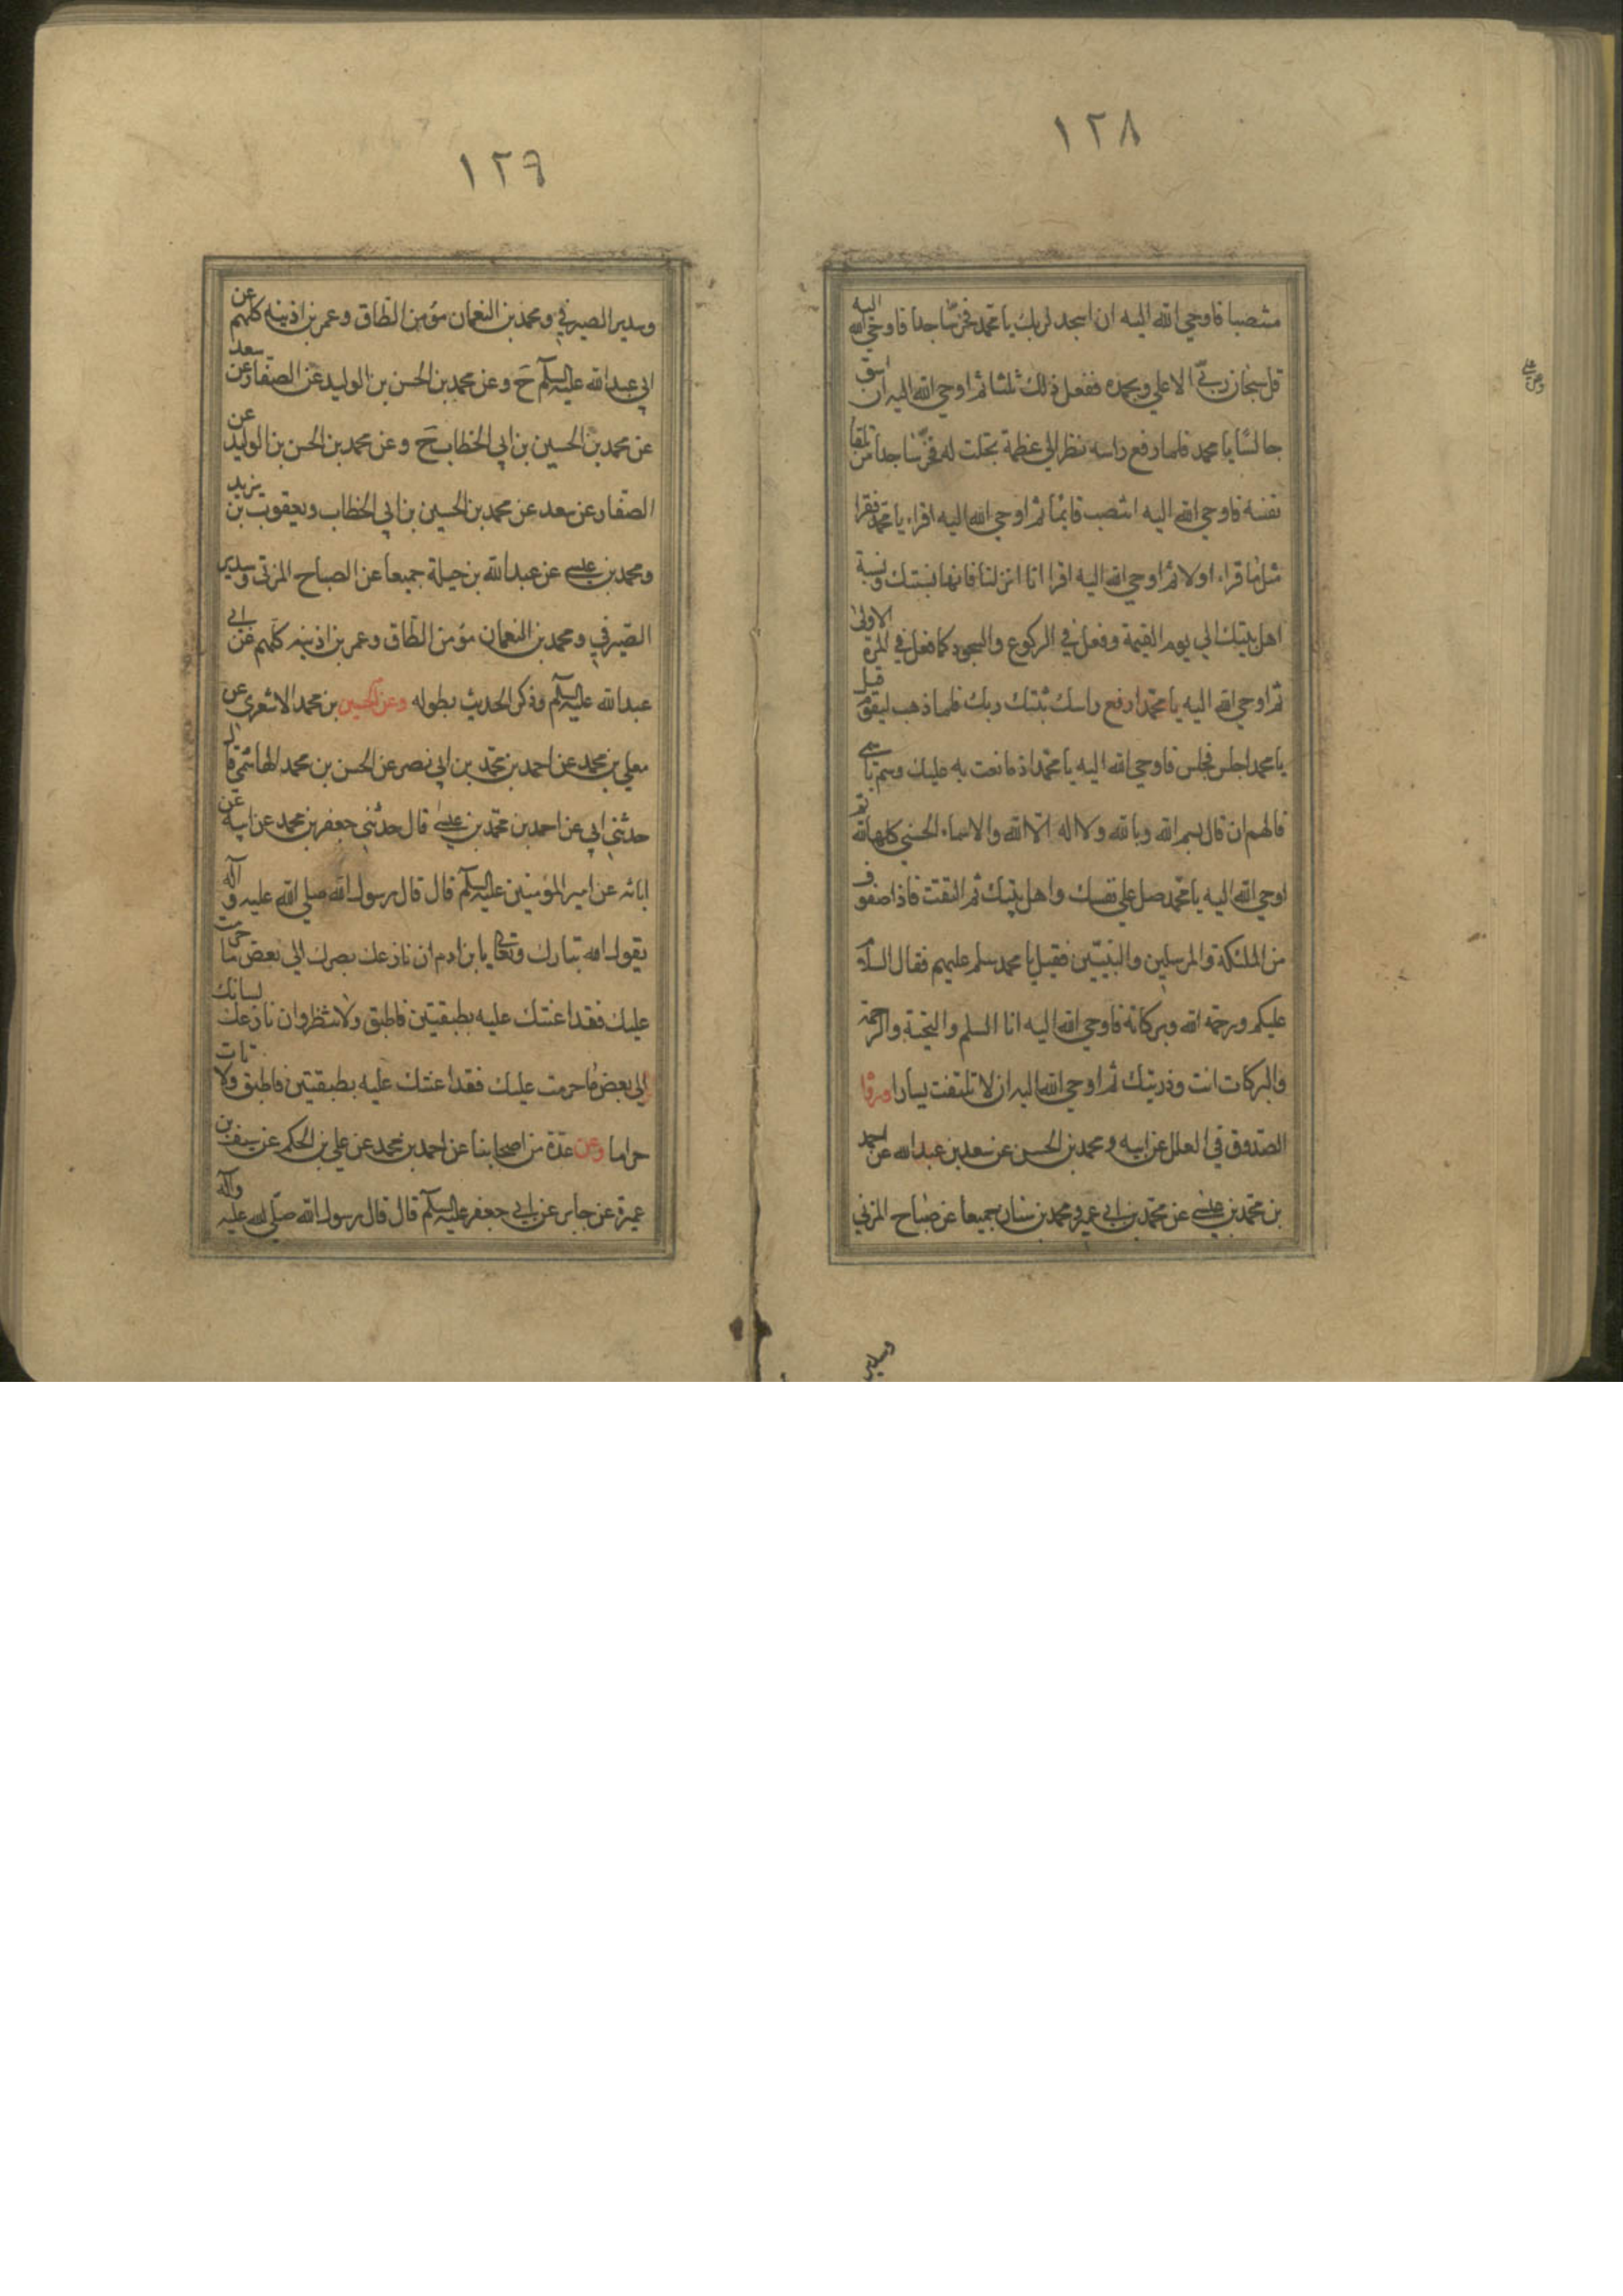 ١٢٨
منتصبا فاوحي الله اليه ان اسجد لربك يا محمد فخر ساجدا فاوحي الله اليه
قل سبحان ربي الاعلي وبحمده ففعل ذلك ثلثا ثم اوحي الله اليه ان استو
جالسا يا محمد فلما رفع راسه نظر الي عظمة تجلت له فخر ساجدا من تلقا
نفسه فاوحي الله اليه انتصب قائما ثم اوحي الله اليه اقراء يا محمد فقرا
مثل ما قراء اولا ثم اوحي الله اليه اقرا انا انزلنا فانها نسبتك ونسبة
اهل بيتك الي يوم القيمة وفعل في الركوع والسجود كما فعل في المرة الاولى
ثم اوحي الله اليه يا محمد ارفع راسك ثبتك ربك فلما ذهب ليقوم قيل
يا محمد اجلس فجلس فاوحي الله اليه يا محمد اذا ما انعمت به عليك وسم باسمي
فالهم ان قال بسم الله وبالله ولا اله الا الله والاسماء الحسني كلها لله ثم
اوحي الله اليه يا محمد صل علي نفسك واهل بيتك ثم التفت فاذا صفوف
من الملئكة والمرسلين والنبيين فقيل يا محمد سلم عليهم فقال السلام
عليكم ورحمة الله وبركاته فاوحي الله اليه انا السلم والتحية والرحمة
والبركات انت وذريتك ثم اوحي الله اليه ان لا تلتفت يسارا
الصدوق في العلل عن ابيه ومحمد بن الحسن عن سعد بن عبد الله عن احمد
بن محمد بن عيسى عن محمد بن ابي عمير ومحمد بن سنان جميعا عن صباح المزني
وسدير
١٢٩
وسدير الصيرفي ومحمد بن النعمان مؤمن الطاق وعمر بن اذينه كلهم عن
ابي عبد الله عليه السلم ح وعن محمد بن الحسن بن الوليد عن الصفار عن سعد
عن محمد بن الحسين بن ابي الخطاب ح وعن محمد بن الحسن بن الوليد عن
الصفار عن سعد عن محمد بن الحسين بن ابي الخطاب ويعقوب بن يزيد
ومحمد بن عيسى عن عبد الله بن جبلة جميعا عن الصباح المزني وسدير
الصيرفي ومحمد بن النعمان مؤمن الطاق وعمر بن اذينه كلهم عن ابي
عبد الله عليه السلم وذكر الحديث بطوله وعن الحسين بن محمد الاشعري عن
معلي بن محمد عن احمد بن محمد بن ابي نصر عن الحسن بن محمد الهاشمي قال
حدثني ابي عن احمد بن محمد بن عيسى قال حدثني جعفر بن محمد عن ابيه عن
ابائه عن امير المؤمنين عليه السلم قال قال رسول الله صلي الله عليه و آله
يقول الله تبارك وتعالى يا بن ادم ان نازعك بصرك الي بعض ما حرمت
عليك فقد اعنتك عليه بطبقتين فاطبق ولا تنظر وان نازعك لسانك
الي بعض ما حرمت عليك فقد اعنتك عليه بطبقتين فاطبق ولا تات
حراما وعن عدة من اصحابنا عن احمد بن محمد عن علي بن الحكم عن سيف بن
عميرة عن جابر عن ابي جعفر عليه السلم قال قال رسول الله صلى الله عليه وآله